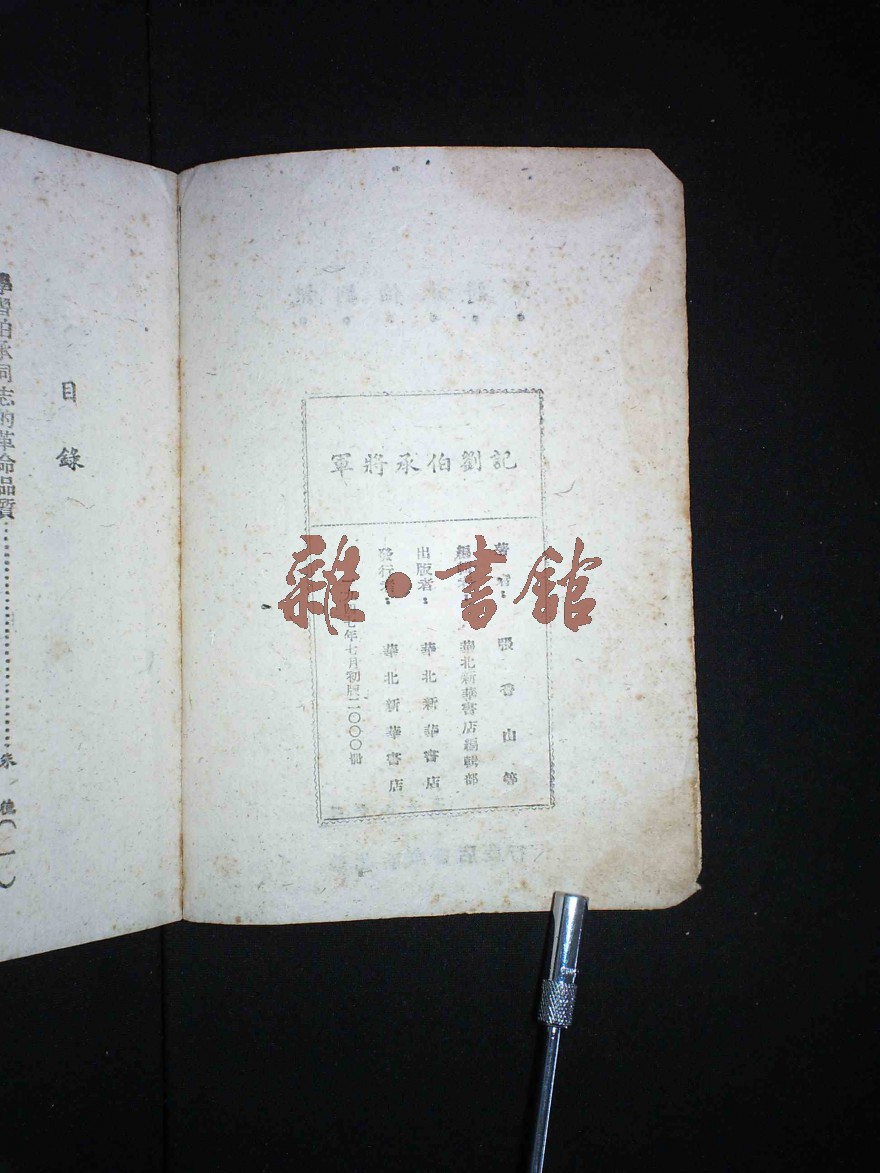 記劉伯承將軍
著者：張香山等
編輯者：華北新華書店編輯部
出版者：華北新華書店
發行者：華北新華書店
四七年七月初版二〇〇〇冊
目錄
學習伯承同志的革命品質……朱德（一）
雜·書館